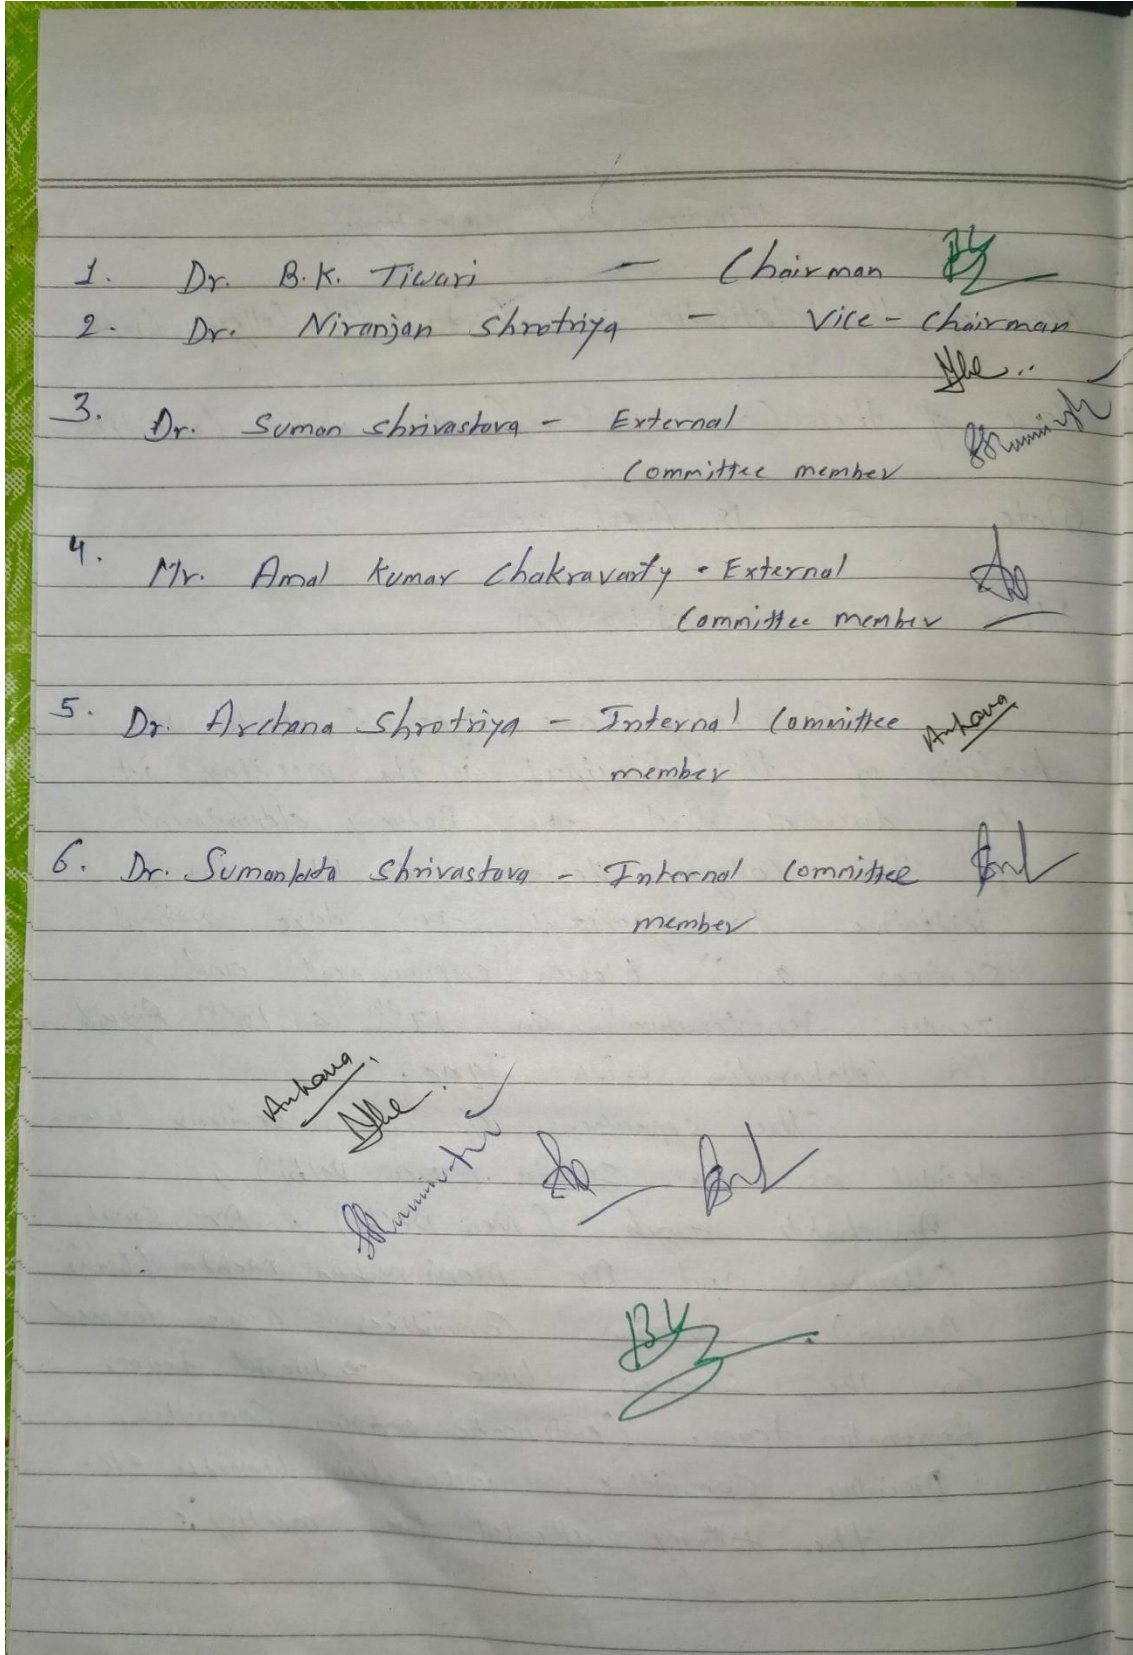 1. Dr. B.K. Tiwari - Chairman BK
2. Dr. Niranjan Shrotriya - Vice-Chairman
3. Dr. Suman Shrivastava - External
Committee member
4. Mr. Amal Kumar Chakravarty - External
Committee member
5. Dr. Archana Shrotriya - Internal Committee Archana
member
6. Dr. Sumanlata Shrivastava - Internal Committee
member
Archana
BK